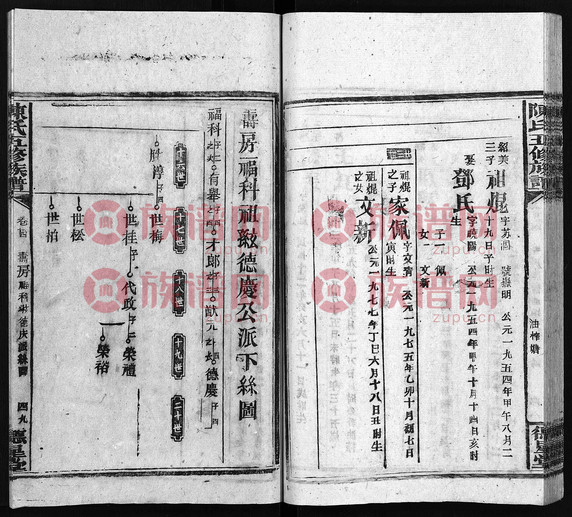 陳氏五修族譜
紹美
三子
祖焜
字英高
號嶽明
公元一九五四年甲午八月二
十九日子時生
娶
鄧氏
公元一九五四年甲午十月十四日亥時
生
子一
佩
女一
文新
祖焜
之子
家佩
公元一九七五年乙卯十月初七日
寅時生
祖焜
之女
文新
公元一九七七年丁巳六月十八日丑時生
油榨塘
德星堂
壽房福科祖茲德慶公派下絲圖
福科
有舉
才郎
猷元
德慶
子四
十六世
十七世
十八世
十九世
二十世
勝淳
世梅
世桂
代政
榮禮
榮裕
世松
世拍
陳氏五修族譜
壽房
四九
德星堂
族谱网
zupu.cn